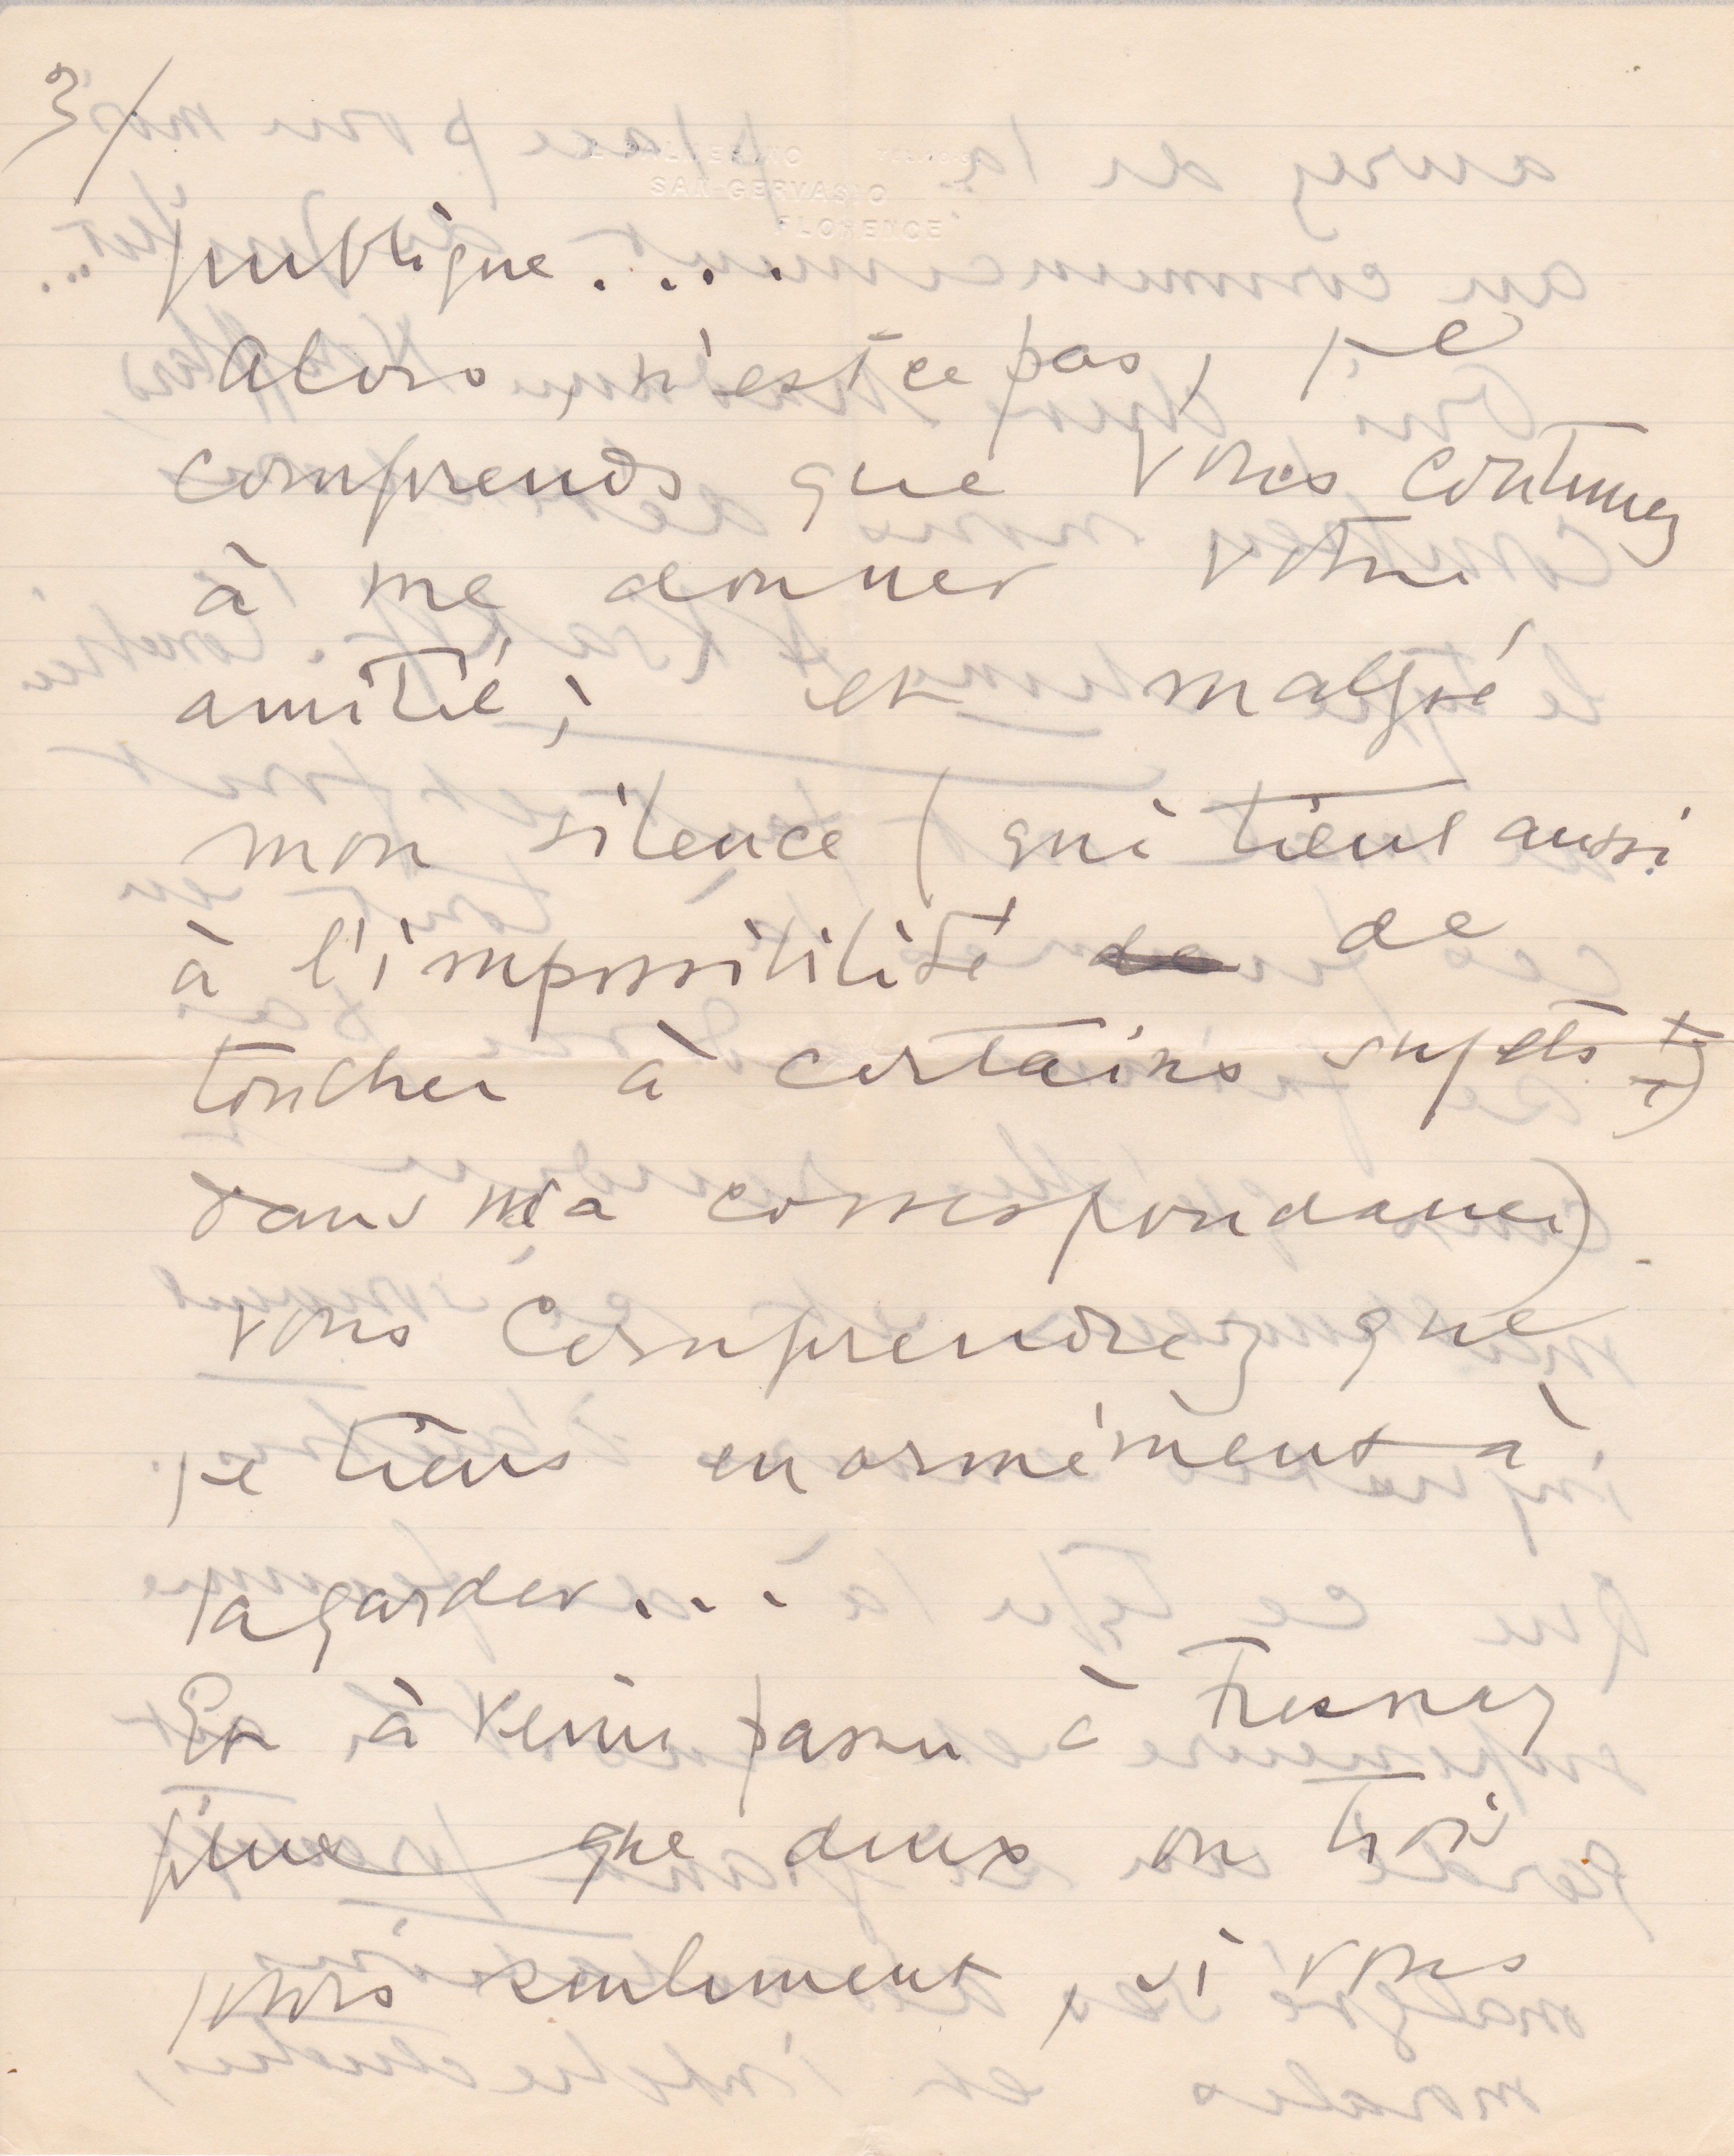 3/
IL PALMERINO
SAN GERVASIO
FLORENCE
publique....
Alors, n'est ce pas, je
comprends que vous continuez
à me donner votre
amitié; et malgré
mon silence (qui tient aussi
à l'impossibilité de de
toucher à certains sujets
dans ma correspondance)
vous comprendrez que
je tiens enormément à
la garder...
Et à venir passer à Fresnay
fût ce que deux ou trois
jours seulement, si vous